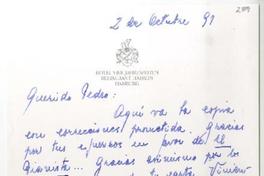 2 de Octubre 91
HOTEL VIER JAHRESZEITEN
HAMBURG
Querido Pedro:
Aquí va la copia
con correcciones prometida. Gracias
por tus esfuerzos en favor de
Gracias asimismo por los